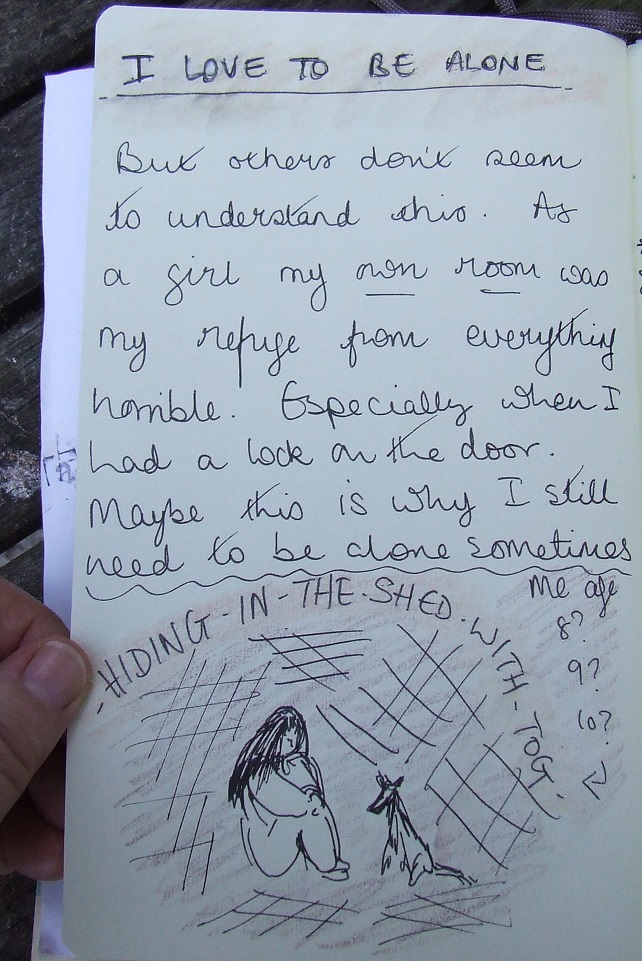 I LOVE TO BE ALONE
But others don't seem
to understand this. As
a girl my own room was
my refuge from everything
horrible. Especially when I
had a lock on the door.
Maybe this is why I still
need to be alone sometimes
-HIDING-IN-THE-SHED-WITH-TOG.
Me age
8?
9?
10?